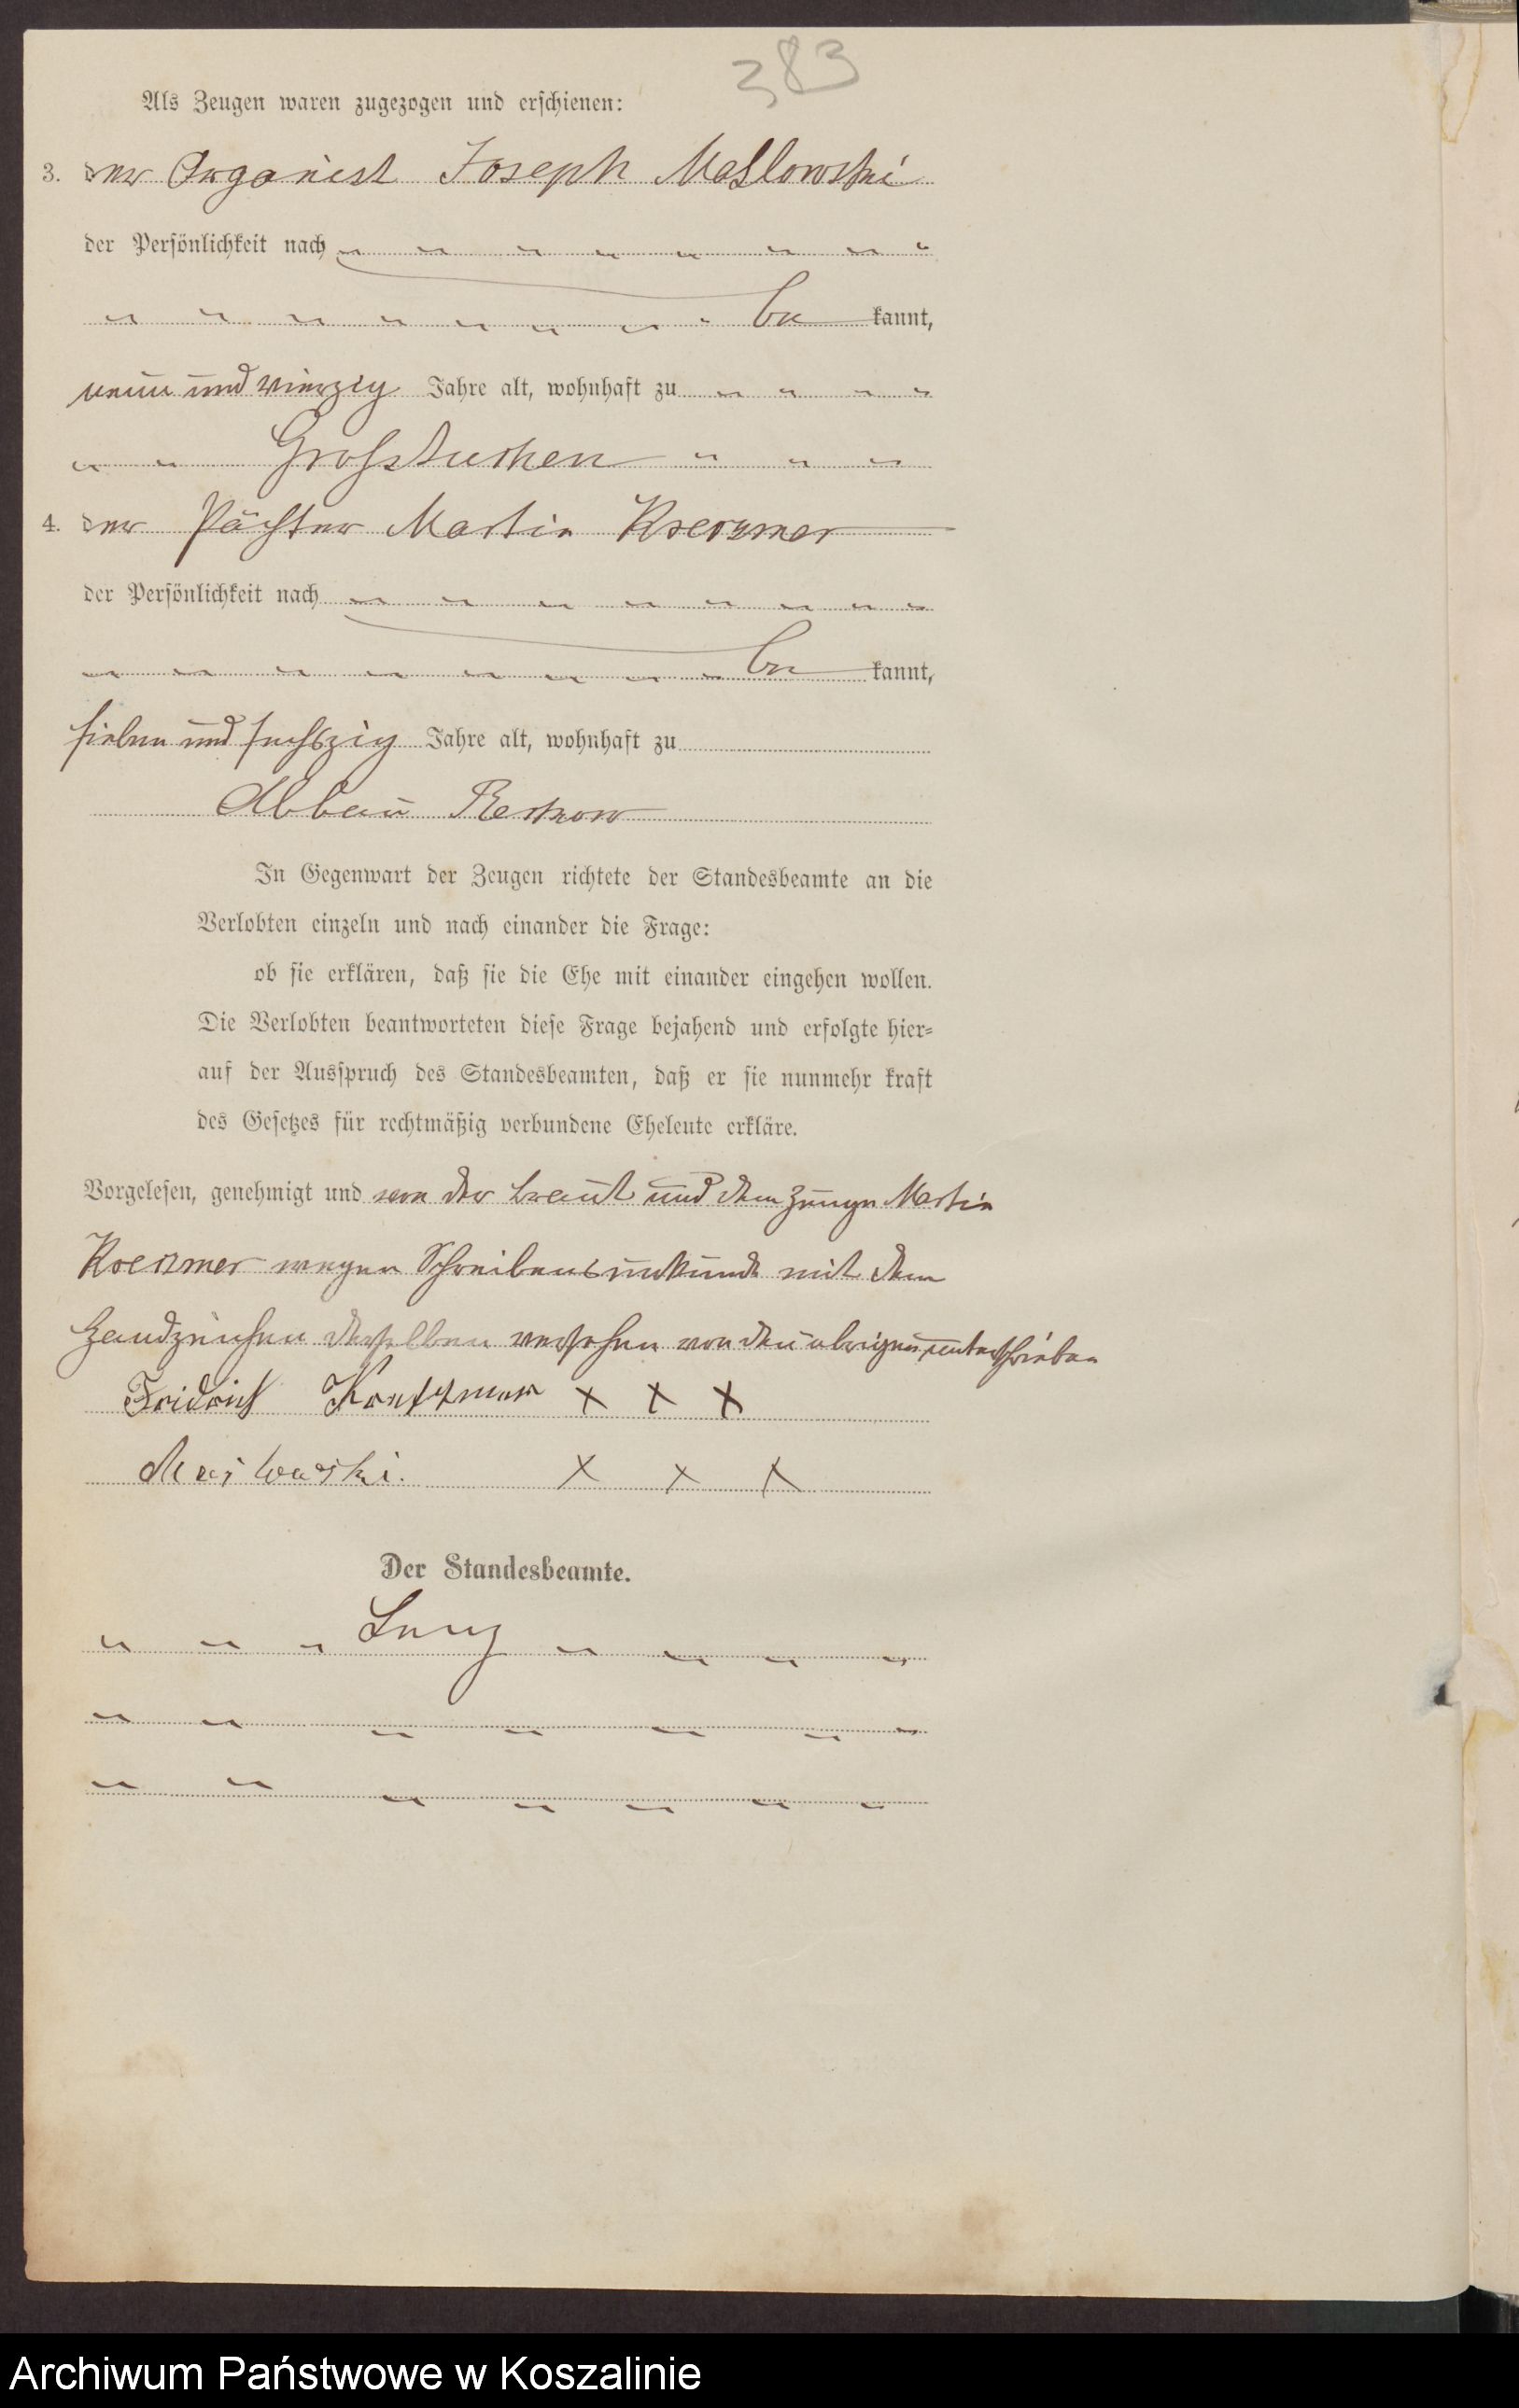 383
Als Zeugen waren zugezogen und erschienen:
3. der Organist Joseph Maslowski
der Persönlichkeit nach
be kannt,
neun und vierzig Jahre alt, wohnhaft zu
Großtuchen
4. der Pächter Martin
der Persönlichkeit nach
be kannt,
sieben und sechszig Jahre alt, wohnhaft zu
Abbau Reckow
In Gegenwart der Zeugen richtete der Standesbeamte an die
Verlobten einzeln und nach einander die Frage:
ob sie erklären, daß sie die Ehe mit einander eingehen wollen.
Die Verlobten beantworteten diese Frage bejahend und erfolgte hier=
auf der Ausspruch des Standesbeamten, daß er sie nunmehr kraft
des Gesetzes für rechtmäßig verbundene Eheleute erkläre.
Vorgelesen, genehmigt und von der Braut und dem Zeugen Martin
wegen Schreibensunkunde mit dem
Handzeichen derselben versehen von den übrigen unterschrieben
Fridrich × × ×
Maslowski. × × ×
Der Standesbeamte.
Archiwum Państwowe w Koszalinie